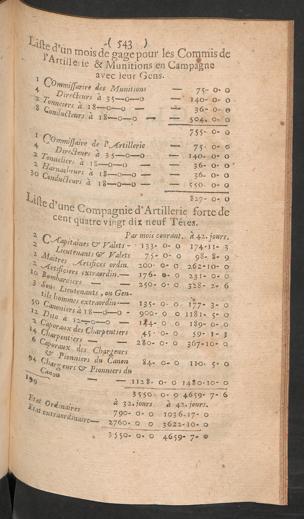 ( 543 )
Liste d'un mois de gage pour les Commis de
l'Artillerie & Munitions en Campagne
avec leur Gens.
1 Commissaire des Munitions — 75-0-0
4 Directeurs à 35-0-0 — 140-0-0
2 Tonneliers à 18-0-0 — 36-0-0
8 Conducteurs à 18-0-0 — 504-0-0
755-0-0
1 Commissaire de l'Artillerie — 75-0-0
4 Directeurs à 35-0-0 — 140-0-0
2 Tonneliers à 18-0-0 — 36-0-0
2 Harnacheurs à 18-0-0 — 36-0-0
30 Conducteurs à 18-0-0 — 550-0-0
827-0-0
Liste d'une Compagnie d'Artillerie forte de
cent quatre vingt dix neuf Têtes.
Par mois courant. à 42. jours.
2 Capitaines & Valets - 133-0-0 174-11-3
2 Lieutenants & Valets 75-0-0 98-8-9
1 Maitres Artifices ordin. 200-0-0 262-10-0
2 Artificires extraordin.— 176-0-0 231-0-0
10 Bombardiers — 250-0-0 328-2-6
3 sous Lieutenants, ou Gen-
tils hommes extraordin— 135-0-0 177-3-0
50 Canoniers à 18-0 - 900-0-0 1181-5-0
12 Dito à 12-0-0 — 144-0-0 189-0-0
2 Caporaux des Charpentiers 45-0-0 59-1-3
14 Charpentiers — 280-0-0 367-10-0
6 Caporaux des Chargeurs
& Pionniers du Canon 84-0-0 110-5-0
94 Chargeurs & Pionniers du
Canon — 1128-0-0 1480-10-0
199
3550-0-0 4659-7-6
à 32. jours à 42. jours.
Etat Ordinaires 790-0-0 1036-17-0
Etat extraordinaire— 2760-0-0 3622-10-0
3550-0-0 4659-7-0